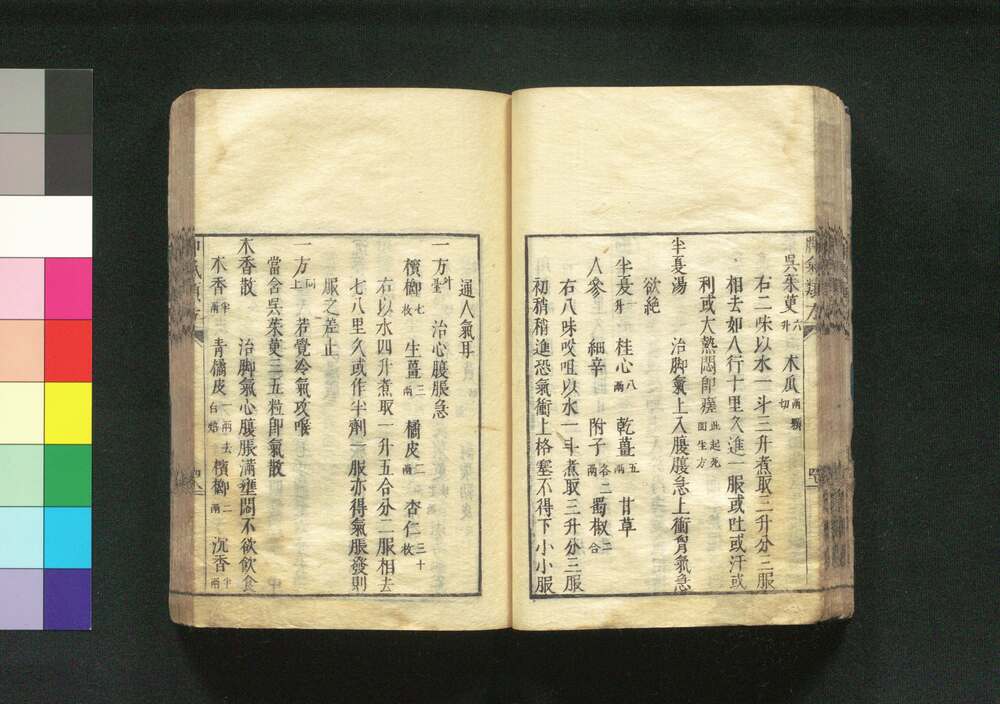 吳茱萸六升 木瓜兩顆切
右二味以水一斗三升煮取三升分三服
相去如人行十里久進一服或吐或汗或
利或大熱悶即瘥此起死回生方
半夏湯 治脚氣上入腹腹急上衝胷氣急
欲絶
半夏一升 桂心八兩 乾薑五兩 甘草
人參 細辛 附子各二兩 蜀椒三合
右八味㕮咀以水一斗煮取三升分三服
初稍稍進恐氣衝上格塞不得下小小服
通人氣耳
一方外臺 治心腹脹急
檳榔七枚 生薑三兩 橘皮二兩 杏仁三十枚
右以水四升煮取一升五合分二服相去
七八里久或作半劑一服亦得氣脹發則
服之差止
一方同上 若覺冷氣攻喉
當含吳茱萸三五粒即氣散
木香散 治脚氣心腹脹滿壅悶不欲飲食
木香半兩 青橘皮一兩去白焙 檳榔二兩 沉香半兩